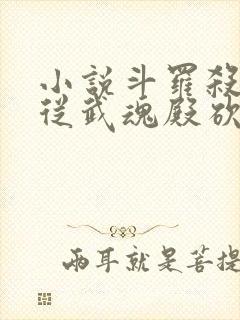 小說斗羅殺
從武魂殿砍
兩耳就是菩提